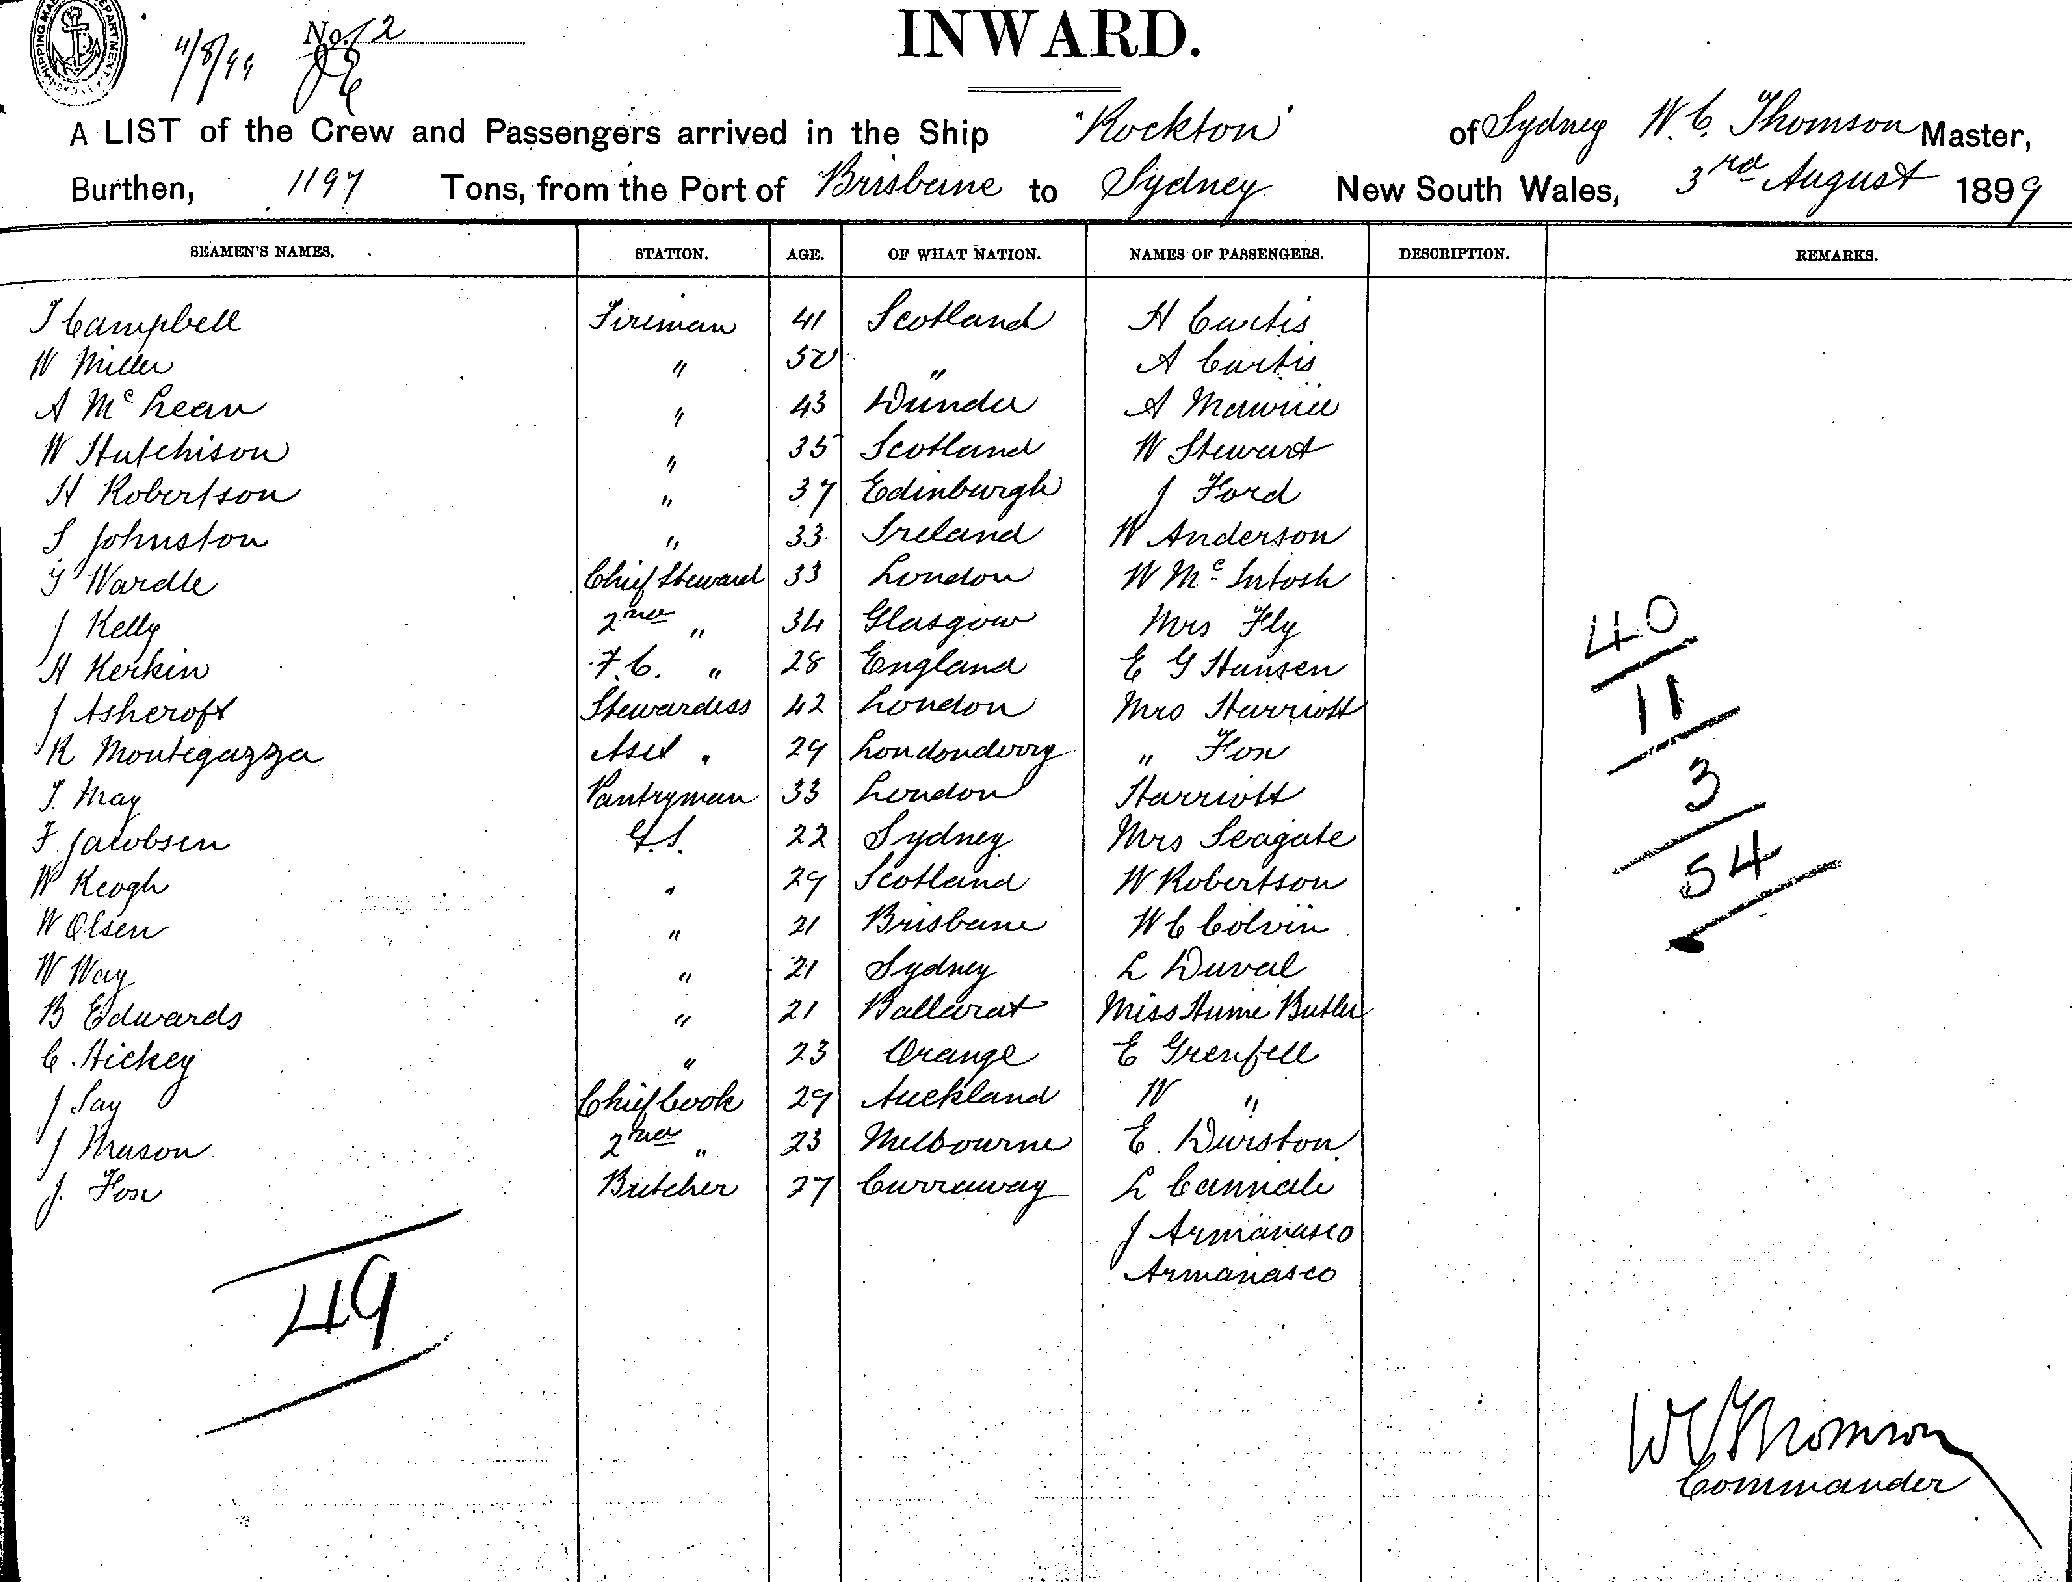 SHIPPING MASTER'S DEPARTMENT
4/8/99 No. 2
INWARD.
A LIST of the Crew and Passengers arrived in the Ship "Rockton" of Sydney W. C. Thomson Master,
Burthen, 1197 Tons, from the Port of Brisbane to Sydney New South Wales, 3rd August 1899
SEAMEN'S NAMES. STATION. AGE. OF WHAT NATION. NAMES OF PASSENGERS. DESCRIPTION. REMARKS.
J Campbell Fireman 41 Scotland H Curtis
W Miller " 50 " A Curtis
A McLean " 43 Dundee A Maurice
W Hutchison " 35 Scotland W Stewart
H Robertson " 37 Edinburgh J Ford
S Johnston " 33 Ireland W Anderson
G Wardle Chief Steward 33 London W McIntosh
J Kelly 2nd " 34 Glasgow Mrs Fly
H Kerkin F.C. " 28 England E G Hansen
J Ashcroft Stewardess 42 London Mrs Harriott
R Montegazza Asst " 29 Londonderry " Fox
T. May Pantryman 33 London Harriott
F Jacobsen G.S. 22 Sydney Mrs Seagate
W Keogh " 29 Scotland W Robertson
W Olsen " 21 Brisbane W C Colvin
W Way " 21 Sydney L Duval
B Edwards " 21 Ballarat Miss Hume Butler
C Hickey " 23 Orange E Grenfell
J Say Chief Cook 29 Auckland W "
J Mason 2nd " 23 Melbourne E. Durston
J. Fox Butcher 27 Curraway L Cannali
J Armanasco
Armanasco
40
11
3
54
49
W C Thomson
Commander